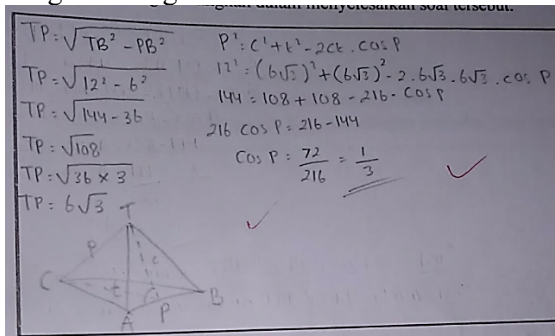 dalam menyelesaikan soal tersebut.
TP = √TB² - PB²
TP = √12² - 6²
TP = √144 - 36
TP = √108
TP = √36 x 3
TP = 6√3
P² = C² + t² - 2Ct . COS P
12² = (6√3)² + (6√3)² - 2 . 6√3 . 6√3 . COS P
144 = 108 + 108 - 216 - COS P
216 COS P = 216 - 144
COS P = 72/216 = 1/3
T
P
c
C
t
B
A
P